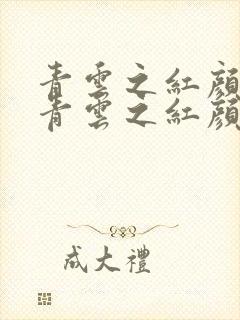 青雲之紅顔
青雲之紅顔
成大禮